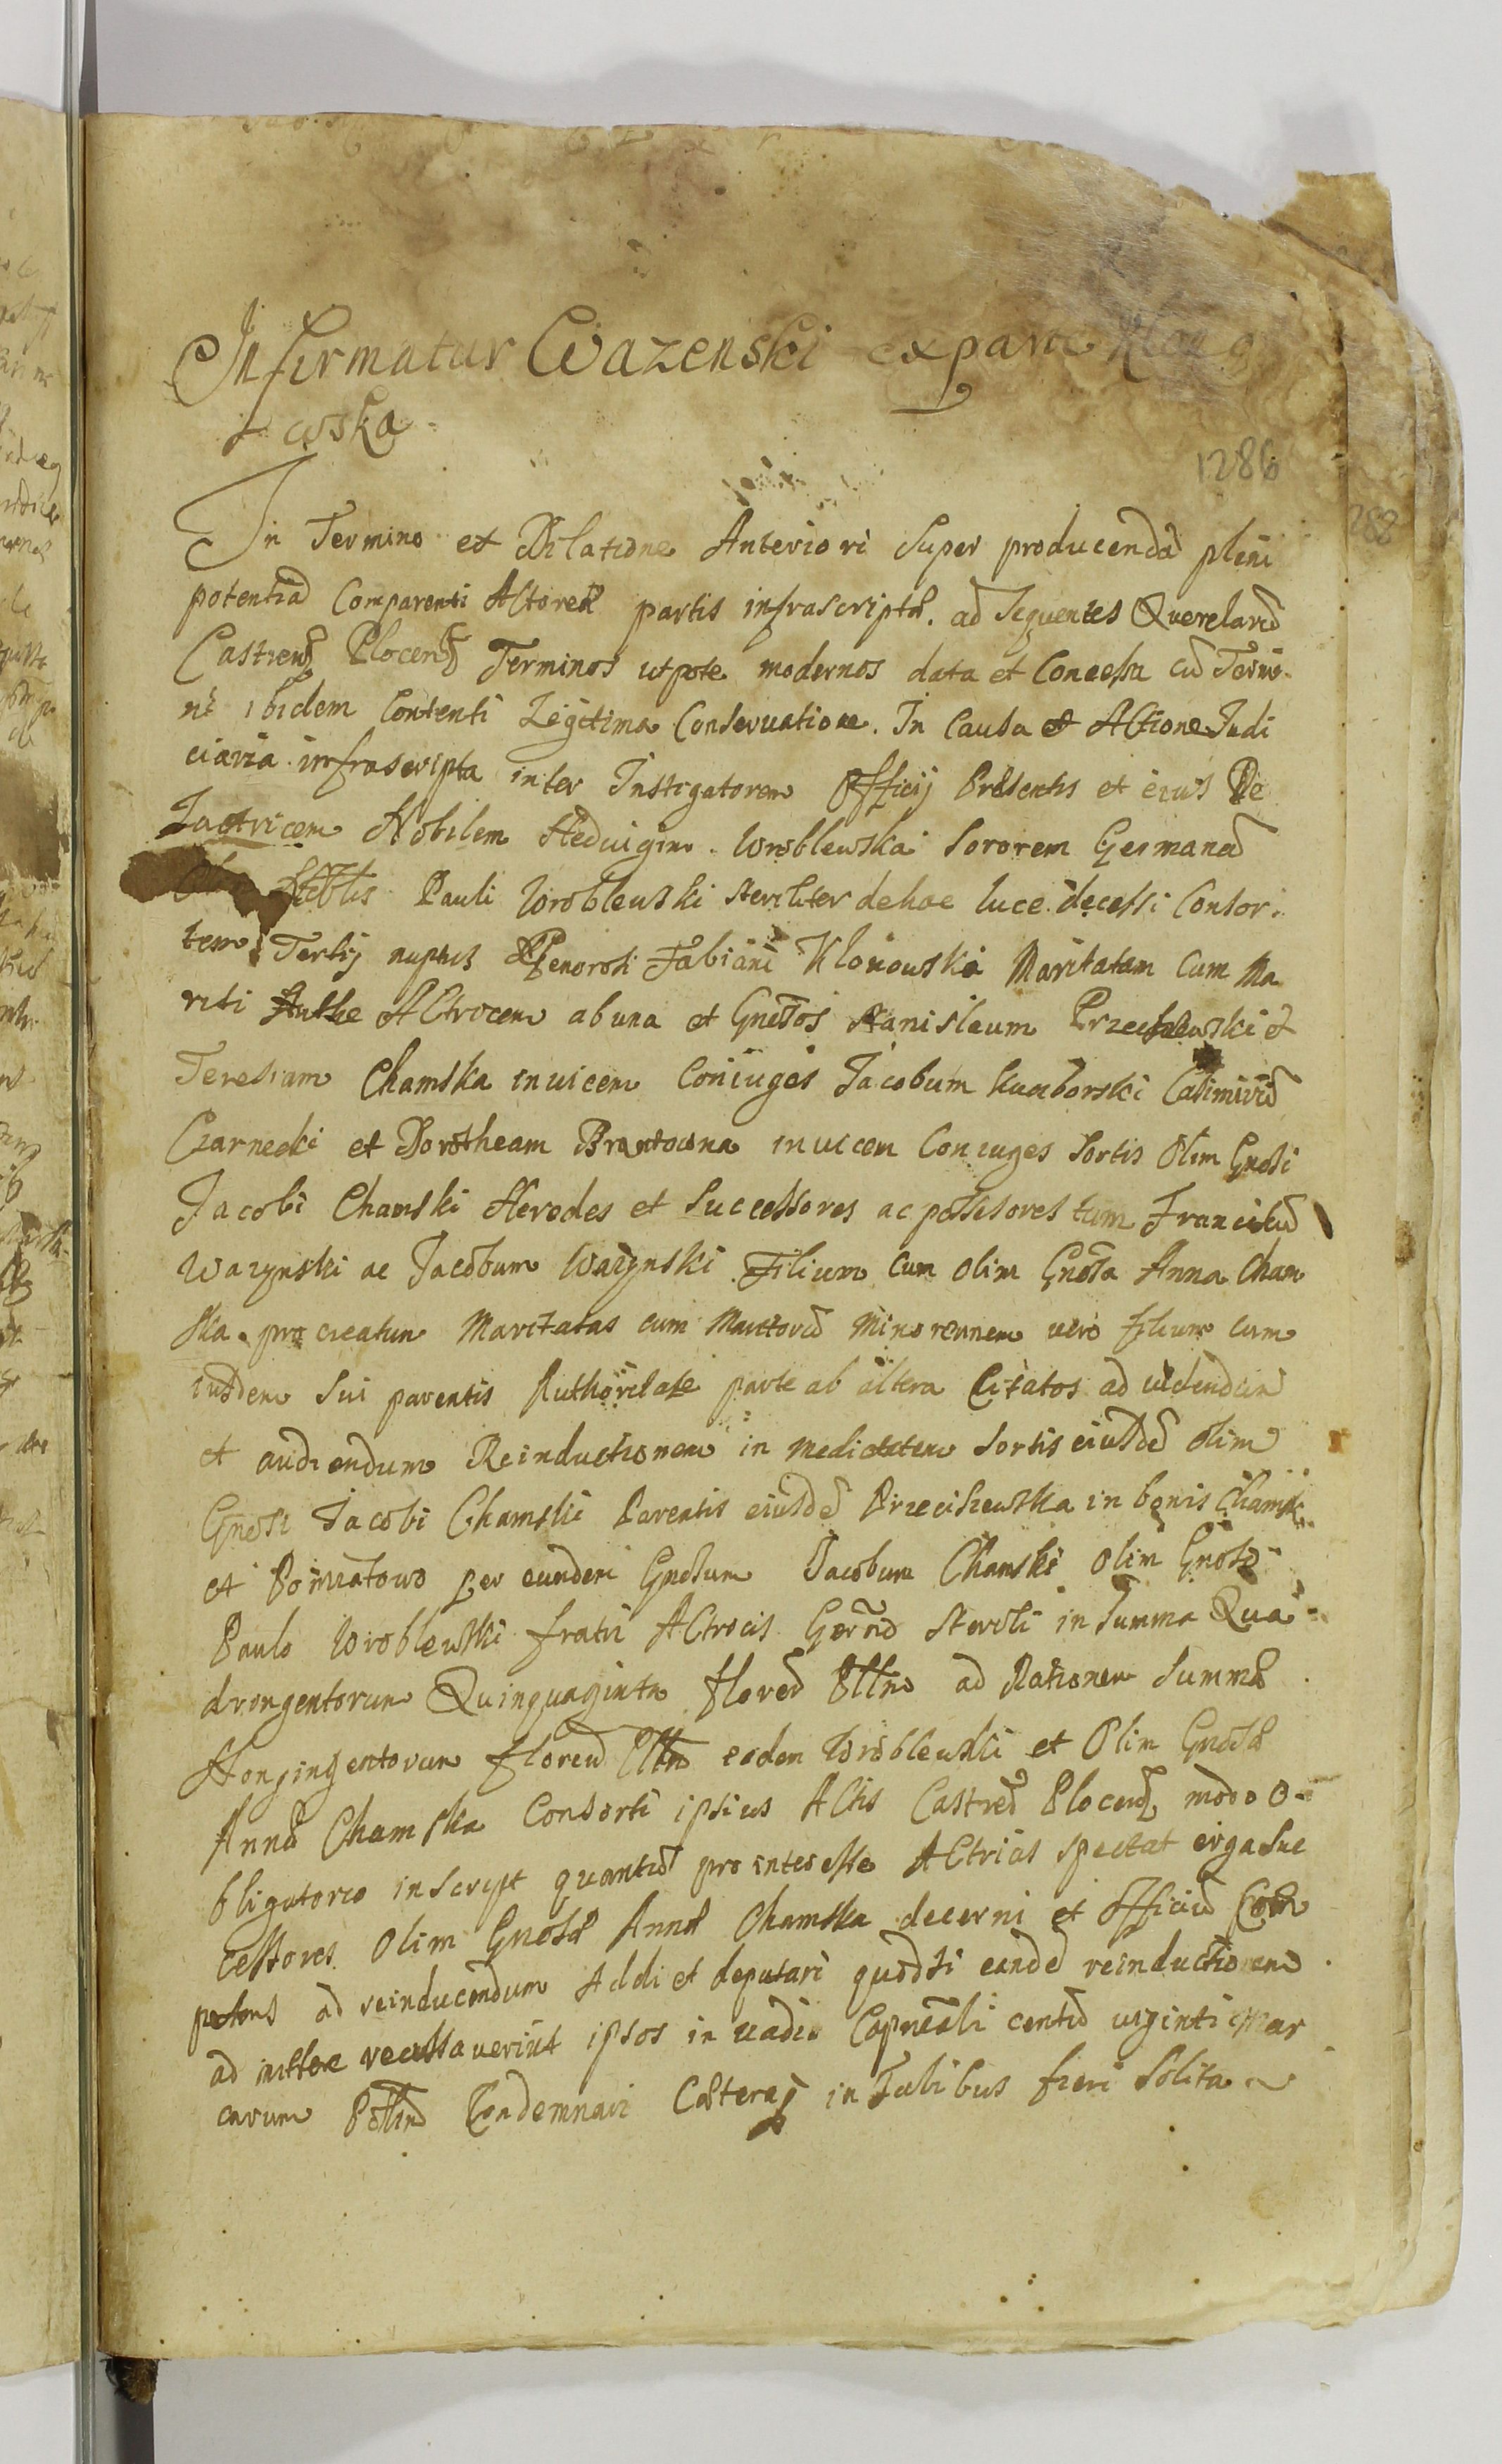 Infirmatur Wazenski ex parte Klono
wska
1286
288
In Termino et Dilatione Anteriori Super producenda pleni
potentia Comparenti Actoreæ partis infrascriptæ. ad Sequentes Querelarū
Castrenẜ Plocenẜ Terminos utpote modernos data et Concessa cū Termi
ni ibidem Contenti Legitima Conservatione. In Causa et Actione Judi
ciaria infrascripta inter Instigatorem Officij Præsentis et eius De
latricem Nobilem Hedvigim Wroblewska Sororem Germanā
Nobilis Pauli Wroblewski steriliter de hac luce decessi Consor
tem Tertij nuptus Generosi Fabiani Klonowski Maritatam Cum Ma
riti Authe Actricem ab una et Gnesos Stanisleum Przeciszewski et
Teresiam Chamska invicem Coniuges Jacobum Kumborski Casimirū
Czarnecki et Dorotheam Brantowna invicem Coniuges Sortis Olim Gnosi
Jacobi Chamski Heredes et Successores ac possesores tum Franciscū
Wazynski ac Jacobum Wazynski Filium Cum olim Gnosa Anna Cham
ska procreatum Maritatas cum Maritorū Minorennem vero filium cum
iusdem Sui parentis Authoritate parte ab altera Citatos ad videndum
et audiendum Reinductionem in Medietatem Sortis eiusdē olim
Gnosi Jacobi Chamski Parentis eiusdē Przeciszewska in bonis Chamsk
et Poniatowo per eundem Gnosum Jacobum Chamski olim Gnoso
Paulo Wroblewski fratri Actricis Germō Sterili in Summa Qua
dringentorum Quinquaginta florē Plln ad Rationem Summæ
Nongingentorum florenū Plln eidem Wroblewski et Olim Gnosæ
Annæ Chamska Consorti ipsius Actis Castreñ Plocenẜ modo O
bligatorio inscript quantū pro interesse Actricis spectat erga Suc
cessores Olim Gnosæ Annæ Chamska decerni et Officiū Com
petens ad reinducendum Addi et deputari quodsi eandē reinductionem
ad mittere recusaverint ipsos in vadio Capneali centū viginti Mar
carum Pollin Condemnari Cæteraq in Talibus fieri Solita